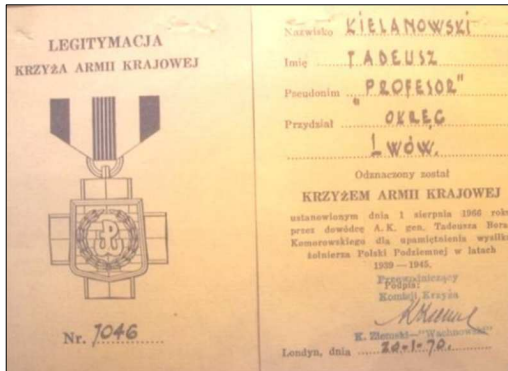 LEGITYMACJA
KRZYŻA ARMII KRAJOWEJ
Nr. 7046
Nazwisko KIELANOWSKI
Imię TADEUSZ
Pseudonim "PROFESOR"
Przydział OKRĘG
LWÓW.
Odznaczony został
KRZYŻEM ARMII KRAJOWEJ
ustanowionym dnia 1 sierpnia 1966 roku
przez dowódcę A.K. gen. Tadeusza Bora-
Komorowskiego dla upamiętnienia wysiłku
żołnierza Polski Podziemnej w latach
1939 — 1945.
Przewodniczący
Podpis:
Komisji Krzyża
K. Ziemski—"Wachnowski"
Londyn, dnia 20-1-70.